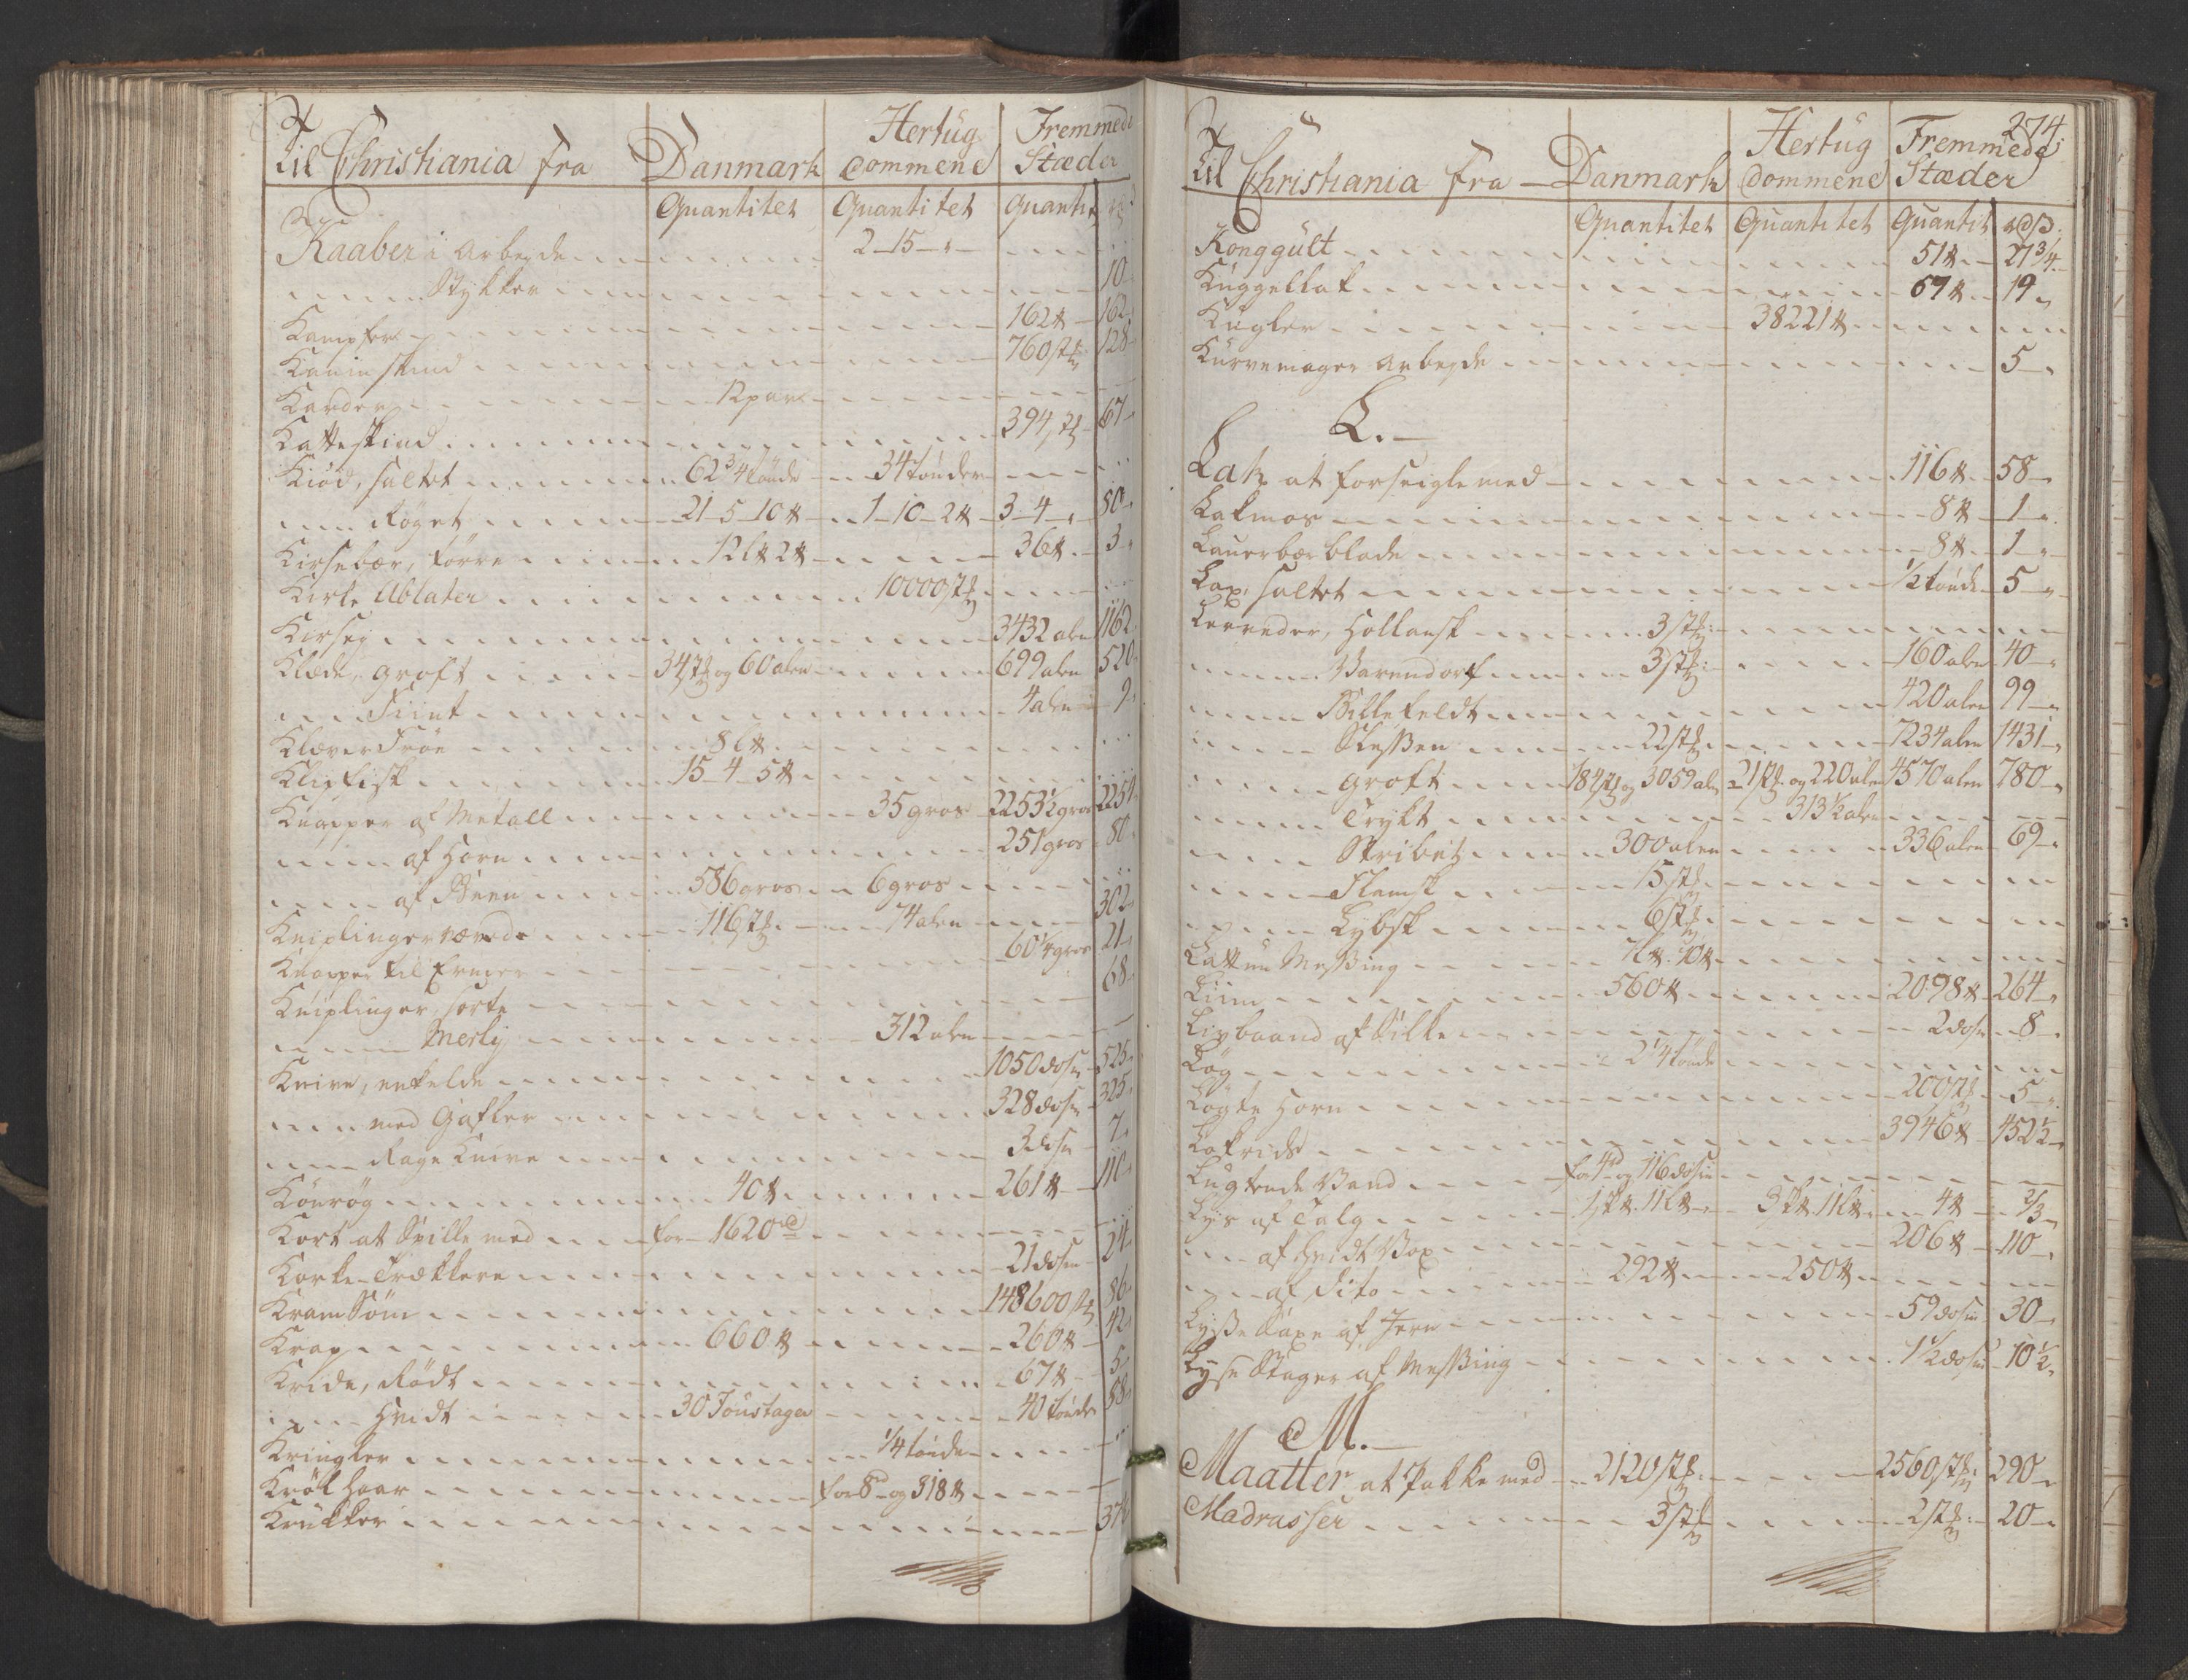 Til Christiania fra Danmark Hertug dommene Fremmede Stæder
Quantitet Quantitet Quantit
Kaaber i arbejde 2-15-"
Stykker 10
Kampfer 162 ℔ 162
Kaninskind 760 st 128
Karder 12 par
Katteskind 394 st 67
Kiød, saltet 62 3/4 tønde 34 tønder
Røget 21-5-10 ℔ 1-10-2 ℔ 3-4-" 80
Kirsebær, tørre 12 l℔ 2 ℔ 36 ℔ 3
Kirke Ablater 10000 st
Kirsey 3432 alen 1162
Klæde, groft 34 st og 60 alen 699 alen 520
Fiint 4 alen 9
Kløver Frøe 8 l℔
Klipfisk 15-4-5 ℔
Knapper af Metall 35 gros 2253 1/2 gros 2254
af Horn 251 gros 80
af Been 586 gros 6 gros
Kniplinger værede 116 st 74 alen 302
Knapper til Ermer 60 1/4 gros 21
Kniplinger, sorte 68
Merly 312 alen
Knive, enkelde 1050 dosin 525
med Gafler 328 dosin 325
Rage Knive 3 dosin 7
Kønrøg 40 ℔ 261 ℔ 110
Kort at Spille med for 1620 rd
Korke-Trækkere 21 dosin 24
Kram Søm 148600 st 86
Krap 660 ℔ 260 ℔ 42
Kride, Rødt 67 ℔ 5
Hvidt 30 Foustager 40 tønder 58
Kringler 1/4 tønde
Krøl haar for 8 rd og 318 ℔
Krukker 37
274
Til Christiania fra Danmark Hertug dommene Fremmede Stæder
Quantitet Quantitet Quantit rdß
Konggült 51 ℔ 27 3/4
Kuggellak 67 ℔ 19
Kugler 38221 ℔
Kurvemager arbejde 5
L.
Lak at forseigle med 116 ℔ 58
Lakmos 8 ℔ 1
Lauerbær blade 8 ℔ 1
Lax, saltet 1/2 tønde 5
Lerreder, Hollansk 3 st
Varendorf 3 st 160 alen 40
Billefeldt 420 alen 99
Slessen 22 st 7234 alen 1431
groft 184 st og 3059 alen 21 st og 220 alen 4570 alen 780
Trykt 313 1/2 alen
Stribet 300 alen 336 alen 69
Flamsk 15 st
Lybsk 6 st
Lattun Messing 1 l℔ 10 ℔
Liim 560 ℔ 2098 ℔ 264
Livbaand af Silke 2 dosin 8
Løg 2 1/4 tønde
Løgte Horn 200 st 5
Lakrids 3946 ℔ 452 1/2
Lugtende Vand for 4 rd og 116 dosin
Lys af Talg 1 sk℔ 11 l℔ 3 sk℔ 11 l℔ 4 ℔ 2/3
af hvidt Vox 206 ℔ 110
af dito 292 ℔ 250 ℔
Lysse Saxe af Jern 59 dosin 30
Lyse Stager af Messing 1 1/2 dosin 10 1/2
M.
Maatter at pakke med 2120 st 2560 st 290
Madrasser 3 st 2 st 20